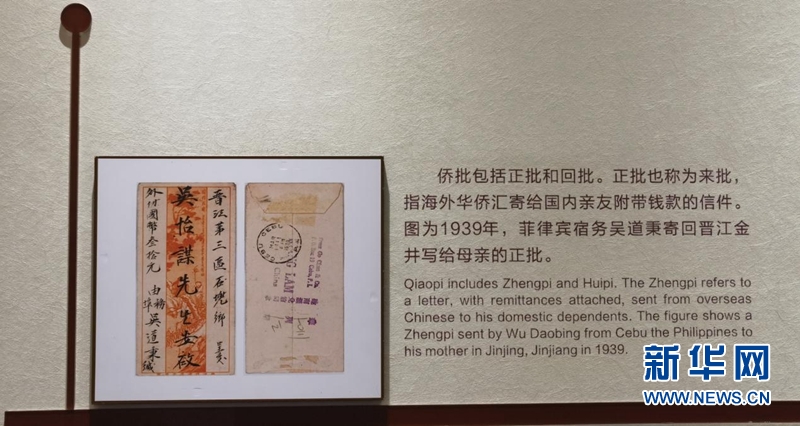 晋江第三區石墝鄉 呈交
吳怡謀先生安啟
外付國幣叁拾元 由務埠吳道秉緘
CEBU
LAM
China
侨批包括正批和回批。正批也称为来批，
指海外华侨汇寄给国内亲友附带钱款的信件。
图为1939年，菲律宾宿务吴道秉寄回晋江金
井写给母亲的正批。
Qiaopi includes Zhengpi and Huipi. The Zhengpi refers to
a letter, with remittances attached, sent from overseas
Chinese to his domestic dependents. The figure shows a
Zhengpi sent by Wu Daobing from Cebu the Philippines to
his mother in Jinjing, Jinjiang in 1939.
新华网
WWW.NEWS.CN